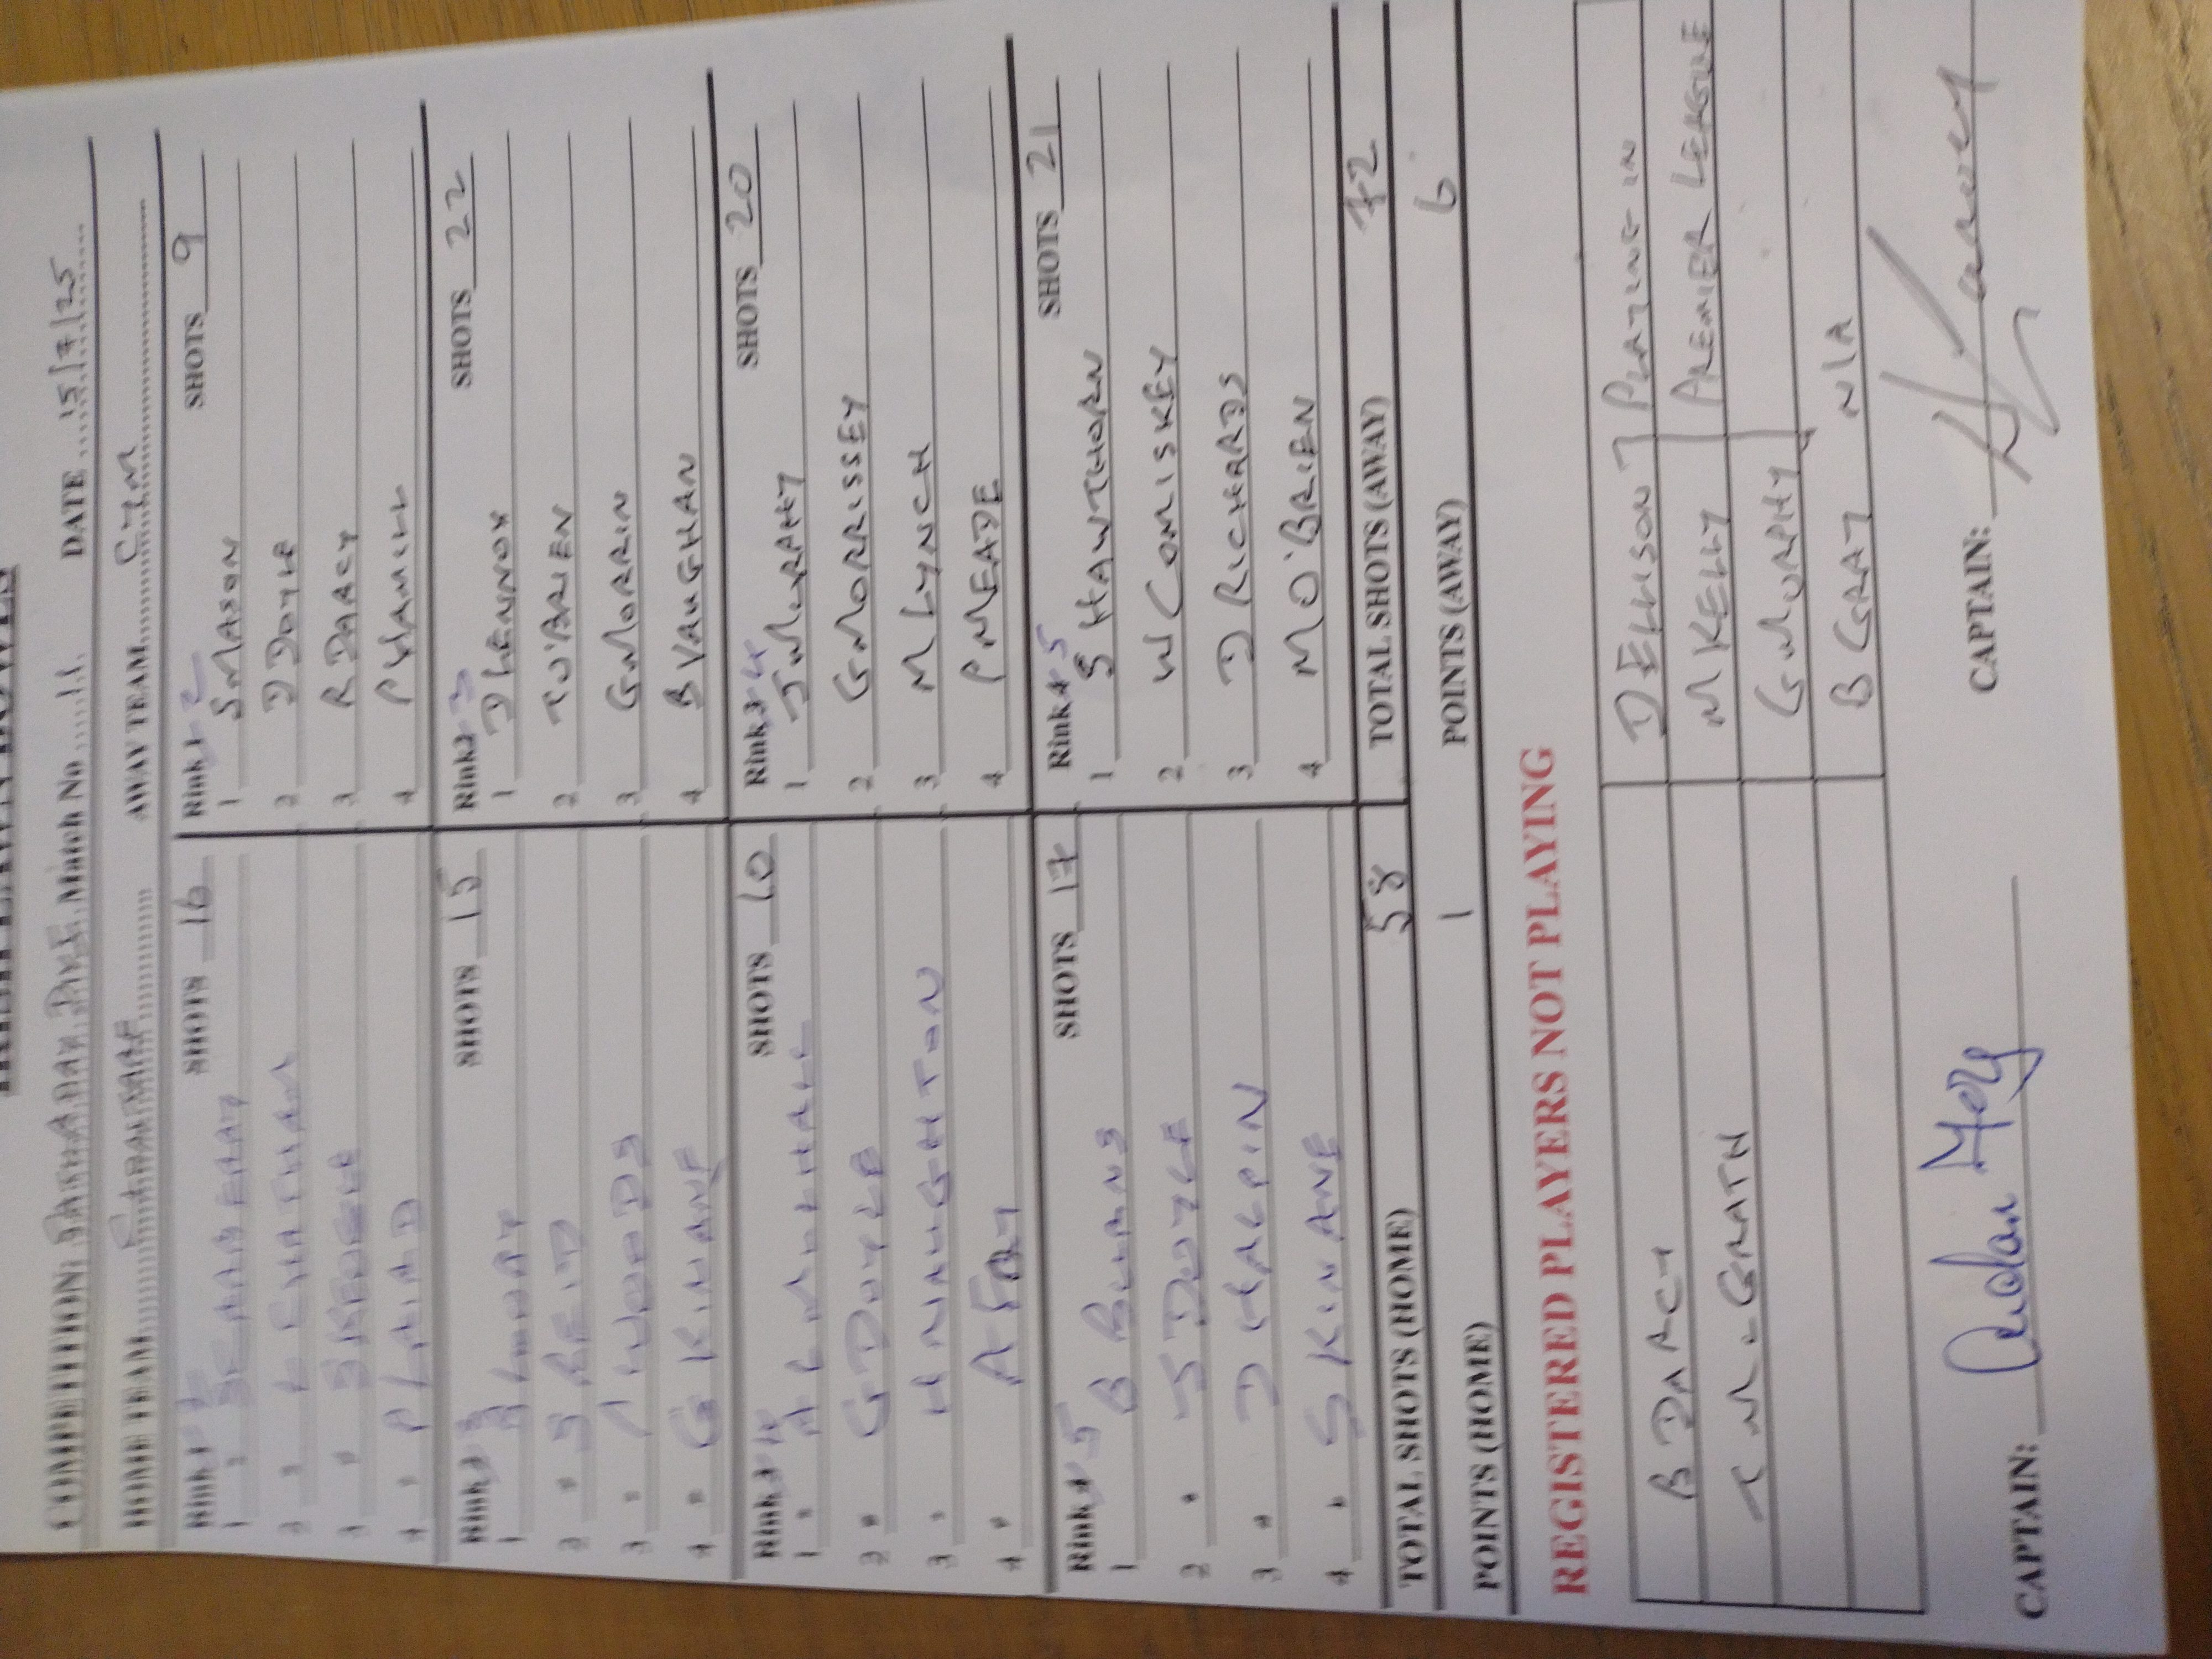 COMPETITION: Match No 11. DATE 15/7/25
HOME TEAM AWAY TEAM CYM
Rink SHOTS 16 Rink 2 SHOTS 9
1 1 S MASON
2 2 D DOYLE
3 3 R DARCY
4 P LAIRD 4 P HAMILL
Rink 3 SHOTS 15 Rink 3 SHOTS 22
1 1 D LENNOX
2 S REID 2 T O'BRIEN
3 WOODS 3 G MORRIN
4 G KINANE 4 B VAUGHAN
Rink 4 SHOTS 10 Rink 4 SHOTS 20
1 1 J MURPHY
2 G DOYLE 2 G MORRISSEY
3 H NAUGHTON 3 M LYNCH
4 A FAY 4 P MEADE
Rink 5 SHOTS 17 Rink 5 SHOTS 21
1 B BURNS 1 S HAWTHORN
2 J DOYLE 2 W COMISKEY
3 D HALPIN 3 D RICHARDS
4 S KINANE 4 M O'BRIEN
TOTAL SHOTS (HOME) 58 TOTAL SHOTS (AWAY) 72
POINTS (HOME) 1 POINTS (AWAY) 6
REGISTERED PLAYERS NOT PLAYING
B DARCY D ELLISON PLAYING IN
T McGRATH M KELLY PREMIER LEAGUE
G MURPHY
B GRAY N/A
CAPTAIN: CAPTAIN: